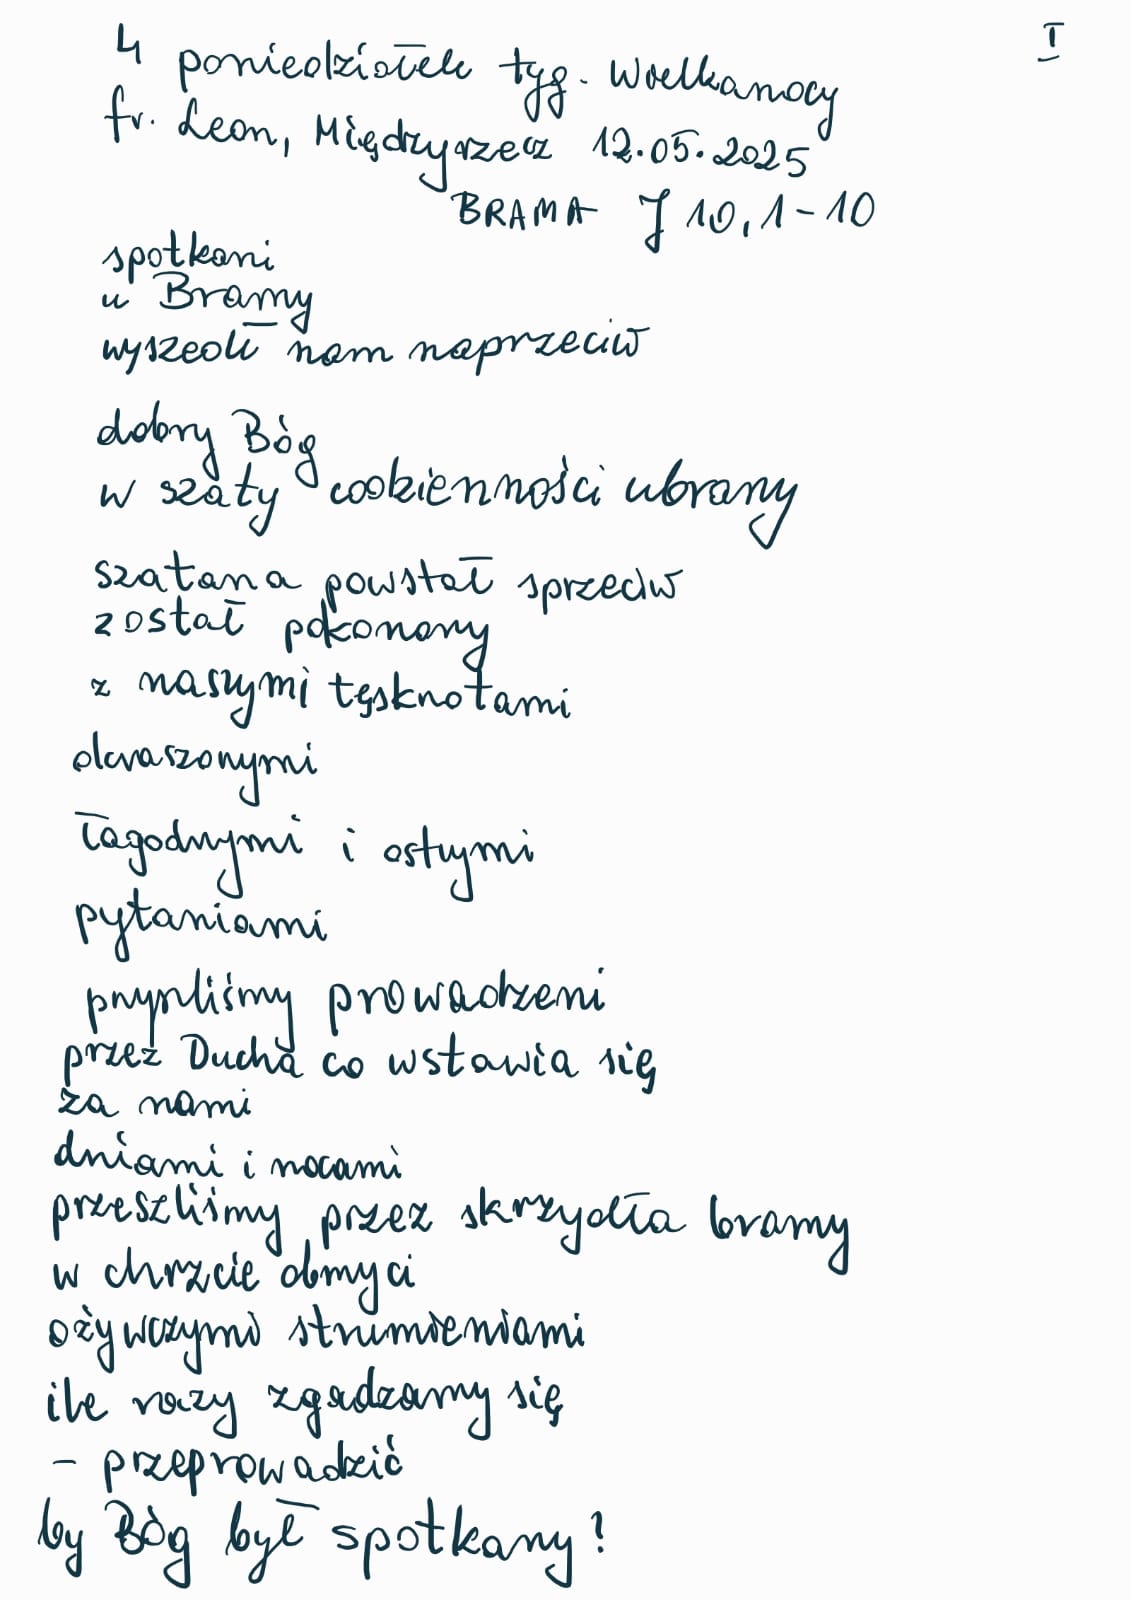 I
4 poniedziałek tyg. Wielkanocy
fr. Leon, Międzyrzecz 12.05.2025
BRAMA J 10,1-10
spotkani
u Bramy
wyszedł nam naprzeciw
dobry Bóg
w szaty codzienności ubrany
szatana powstał sprzeciw
został pokonany
z naszymi tęsknotami
odwaszonymi
łagodnymi i ostrymi
pytaniami
przyszliśmy prowadzeni
przez Ducha co wstawia się
za nami
dniami i nocami
przeszliśmy przez skrzydła bramy
w chrzcie obmyci
ożywczymi strumieniami
ile razy zgadzamy się
- przeprowadzić
by Bóg był spotkany!